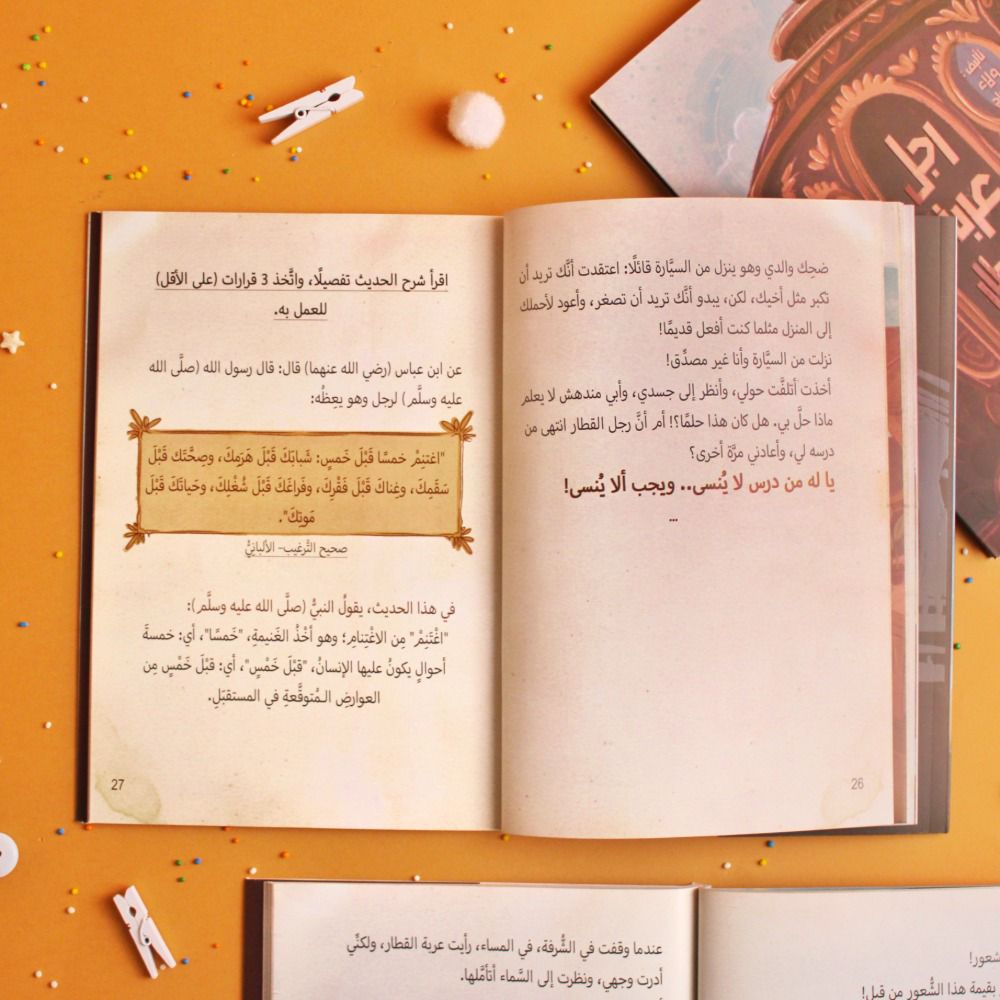 ضحك والدي وهو ينزل من السيَّارة قائلًا: اعتقدت أنَّك تريد أن
تكبر مثل أخيك، لكن، يبدو أنَّك تريد أن تصغر، وأعود لأحملك
إلى المنزل مثلما كنت أفعل قديمًا!
نزلت من السيَّارة وأنا غير مصدِّق!
أخذت أتلفَّت حولي، وأنظر إلى جسدي، وأبي مندهش لا يعلم
ماذا حلَّ بي. هل كان هذا حلمًا؟! أم أنَّ رجل القطار انتهى من
درسه لي، وأعادني مرَّة أخرى؟
يا له من درس لا يُنسى.. ويجب ألا يُنسى!
...
26
اقرأ شرح الحديث تفصيلًا، واتَّخذ 3 قرارات (على الأقل)
للعمل به.
عن ابن عباس (رضي الله عنهما) قال: قال رسول الله (صلَّى الله
عليه وسلَّم) لرجل وهو يعِظُه:
"اغتنِمْ خمسًا قَبْلَ خَمسٍ: شَبابَكَ قَبْلَ هَرَمِكَ، وصِحَّتَك قَبْلَ
سَقَمِكَ، وغِناكَ قَبْلَ فَقْرِكَ، وفَراغَكَ قَبْلَ شُغْلِكَ، وحَياتَكَ قَبْلَ
مَوتِكَ".
صحيح التَّرغيب- الألبانِيُّ
في هذا الحديث، يقولُ النبيُّ (صلَّى الله عليه وسلَّم):
"اغْتَنِمْ" مِن الاغْتِنامِ؛ وهو أخْذُ الغَنيمةِ، "خَمسًا"، أي: خمسةَ
أحوالٍ يكونُ عليها الإنسانُ، "قبْلَ خَمْسٍ"، أي: قبْلَ خَمْسٍ مِن
العوارضِ الـمُتوقَّعةِ في المستقبَلِ.
27
الشعور!
بقيمة هذا الشُّعور من قبل!
عندما وقفت في الشُّرفة، في المساء، رأيت عربة القطار، ولكنِّي
أدرت وجهي، ونظرت إلى السَّماء أتأمَّلها.